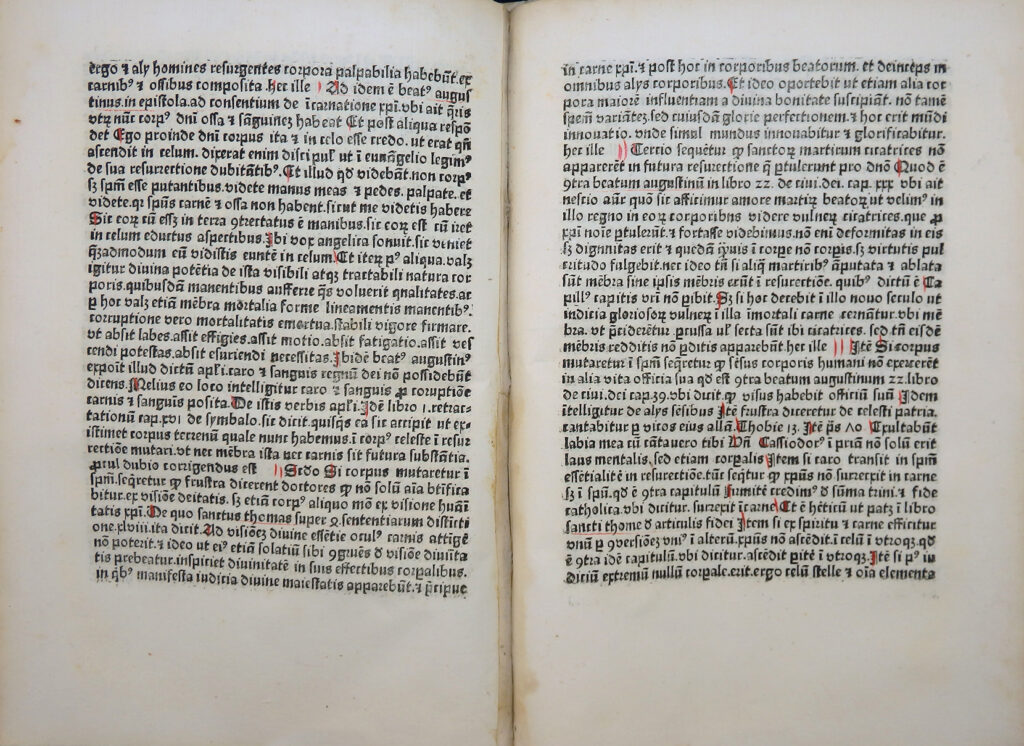 ergo ⁊ aly homines resurgentes corpora palpabilia habebūt.ex
carnibꝰ ⁊ ossibus composita.hec ille Ad idem ē beatꝰ augus
tinus.in epistola.ad consentium de īcarnatione xp̄i.vbi ait q̄ris
vtrū nūc corpꝰ dn̄i ossa ⁊ sāguinez habeat Et post aliqua respō
det Ego proinde dn̄i corpus ita ⁊ in celo esse credo.ut erat qn̄
ascendit in celum.dixerat enim discipul ut ī euāngelio legimꝰ
de sua resurrectione dubitātibꝰ.Et illud qd̄ videbāt.non corpꝰ
sꝫ spm̄ esse putantibus.videte manus meas ⁊ pedes.palpate.et
videte.qꝛ spūs carnē ⁊ ossa non habent.sicut me videtis habere
Sic eoꝝ cū essꝫ in terra ꝯtrectatus ē manibus.sic eoꝝ est cū iret
in celum eductus aspectibus.Ibi vox angelica sonuit.sic veniet
qꝫadmodum eū vidistis euntē in celum Et iteꝝ pꝰ aliqua.valꝫ
igitur divina potētia de ista visibili atqꝫ tractabili natura cor
poris.quibusdā manentibus aufferre q̄s voluerit qualitates.ac
ꝑ hoc valꝫ etiā mēbra mortalia forme lineamentis manentibꝰ.
corruptione vero mortalitatis emortua.stabili vigore firmare.
vt absit labes.assit effigies.assit motio.absit fatigatio.assit ves
cendi potestas.absit esuriendi necessitas.Ibidē beatꝰ augustinꝰ
exponit illud dictū apl̄i.caro ⁊ sanguis regnū dei nō possidebūt
dicens.Melius eo loco intelligitur caro ⁊ sanguis ꝓ corruptiōe
carnis ⁊ sanguis posita.De istis verbis apl̄i.Idē libro i.retrac-
tationū cap.xvi de symbolo.sic dicit.quisqꝫ ea sic accipit ut ex-
istimet corpus terrenū quale nunc habemus.ī corpꝰ celeste ī resur
rectiōe mutari.vt nec mēbra ista nec carnis sit futura substātia.
ꝓcul dubio corrigendus est Scdo Si corpus mutaretur ī
spm̄.seq̄retur ꝙ frustra dicerent doctores ꝙ nō solū aīa btīfica
bitur.ex visiōe deitatis.sꝫ etiā corpꝰ aliquo mō ex visione huāī
tatis xp̄i.De quo sanctus thomas super q̄.sententiarum distincti
one.xlviii.ita dicit.Ad visiōeꝫ divine essētie oculꝰ carnis attīgē
nō poterit.⁊ ideo ut eiꝰ etiā solatiū sibi ꝯgruēs ð visiōe diuīta
tis prebeatur.inspiciet divinitatē in suis effectibus corpalibus.
in qbꝰ manifesta iudicia divine maiestatis apparebūt.⁊ p̄cipue
in carne xp̄i.⁊ post hoc in corporibus beatorum.et deinceps in
omnibus alys corporibus.Et ideo oportebit ut etiam alia cor
pora maiorē influentiam a divina bonitate suscipiāt.nō tamē
spēm variātes.sed cuiusdā glorie perfectionem.⁊ hoc erit mūdi
innouatio.vnde simul mundus innouabitur ⁊ glorificabitur.
hec ille Tercio sequētur ꝙ sanctoꝝ martirum cicatrices nō
apparerēt in futura resurrectione q̄ ptulerunt pro dn̄o Quod ē
ꝯtra beatum augustinū in libro 22.de ciui.dei.cap.xxx vbi ait
nescio aūr quō sic afficimur amore martiꝝ beatoꝝ.ut velimꝰ in
illo regno in eoꝝ corporibus videre vulneꝝ cicatrices.que ꝓ
xp̄i noīe ptulerūt.⁊ fortasse videbimus.nō eni deformitas in eis
sꝫ dignitas erit ⁊ quedā q̄uis ī corpe nō corpis.sꝫ virtutis pul
critudo fulgebit.nec ideo tn̄ si aliq̄ martiribꝰ āputata ⁊ ablata
sūt mēbra sine ipsis mēbris erūt ī resurectiōe.quibꝰ dictū ē Ca
pillꝰ capitis vr̄i nō pibit.Sꝫ si hoc decebit ī illo nouo seculo ut
indicia glriosoꝝ vulneꝝ ī illa īmortali carne cernātur.vbi mē
bra.vt p̄cideretur pcussa ul secta sūt ibi cicatrices.sed tn̄ eisdē
mēbris redditis nō pditis apparebūt.hec ille Itē Si corpus
mutaretur ī spm̄ seq̄retur ꝙ sēsus corporis humani nō exercerēt
in alia vita officia sua qd̄ est ꝯtra beatum augustinum 22.libro
de ciui.dei cap.39.vbi dicit.ꝙ visus habebit officiū suū Idem
ītelligitur de alys sēsibus Itē frustra diceretur de celesti patria.
cantabitur p vicos eius allā.Thobie 13.Itē p̄s 70 Exultabūt
labia mea cū cātauero tibi Vn̄ Cassiodorꝰ ī priā nō solū erit
laus mentalis.sed etiam corꝑalis Item si caro transit in spm̄
essētialitē in resurectiōe.tūc seq̄tur ꝙ xpūs nō surrexit in carne
sꝫ ī spm̄.qd̄ ē ꝯtra capitulū firmitē credimꝰ ð sūma trini.⁊ fide
catholica.vbi dicitur.surexit ī carne Et ē hēticū ut patꝫ ī libro
sancti thome ð articulis fidei Item si ex spiritu ⁊ carne efficitur
vnū ꝑ ꝯversiōeꝫ vniꝰ ī alterū.xpūs nō ascēdit.ī celū ī vtroqꝫ.qd̄
ē ꝯtra idē capitulū.vbi dicitur.ascēdit pitē ī vtroqꝫ.Itē si pꝰ iu
diciū extremū nullū corpale.erit.ergo celū stelle ⁊ oīa elementa